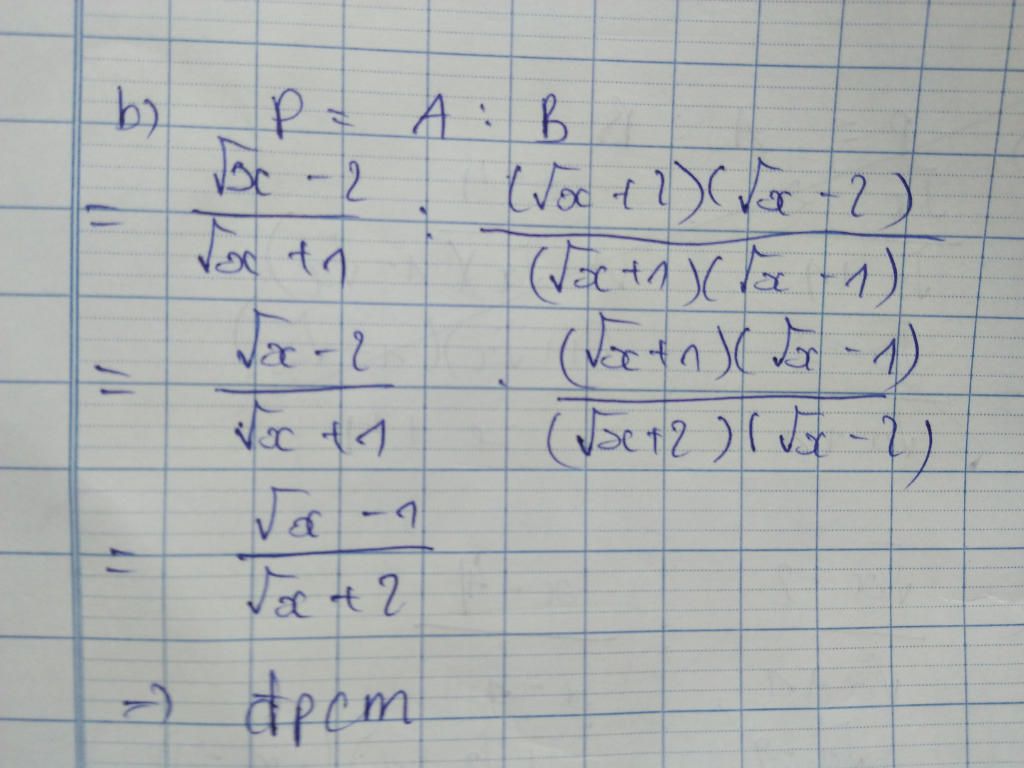 b) P = A : B
= (√x - 2)/(√x + 1) : ((√x + 2)(√x - 2))/((√x + 1)(√x - 1))
= (√x - 2)/(√x + 1) . ((√x + 1)(√x - 1))/((√x + 2)(√x - 2))
= (√x - 1)/(√x + 2)
=> đpcm